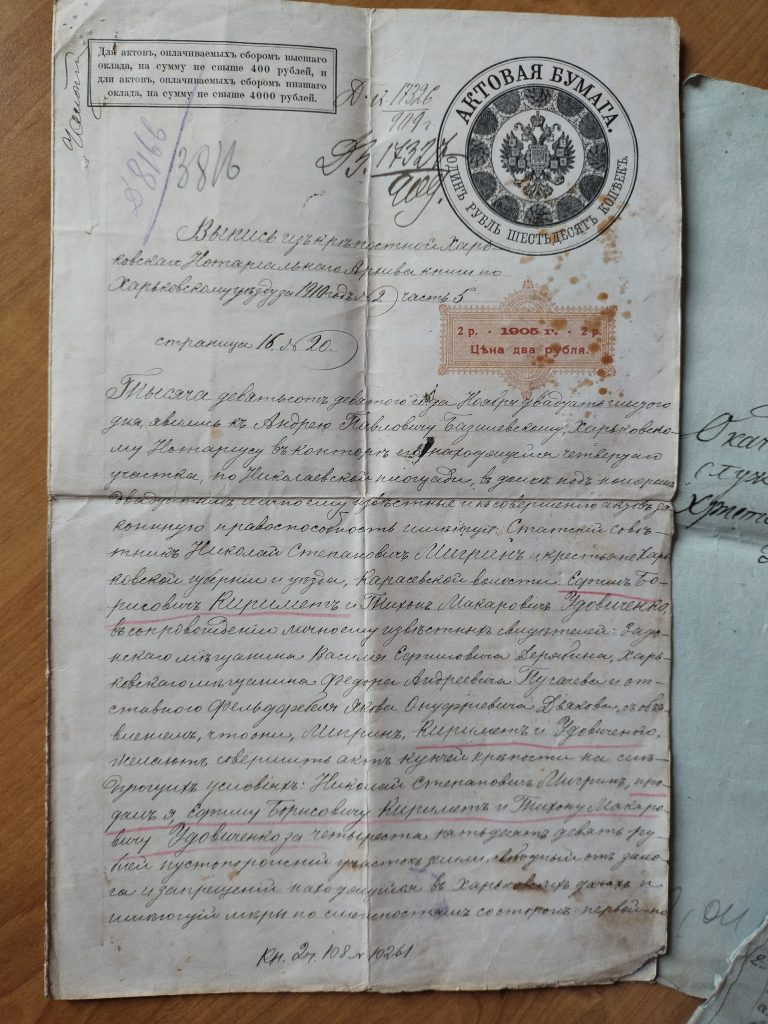 Для актовъ, оплачиваемыхъ сборомъ высшаго
оклада, на сумму не свыше 400 рублей, и
для актовъ, оплачиваемыхъ сборомъ низшаго
оклада, на сумму не свыше 4000 рублей.
АКТОВАЯ БУМАГА.
ОДИНЪ РУБЛЬ ШЕСТЬДЕСЯТЪ КОПѢЕКЪ.
17326
909 г
17327
909.
8166
3816
Выпись изъ крѣпостной Харь-
ковскаго Нотаріальнаго Архива книги по
Харьковскому уѣзду за 1910 годъ № 2 часть 5
страница 16 № 20.
2 р. - 1905 г. - 2 р.
Цѣна два рубля.
Тысяча девятьсотъ девятаго года Ноября двадцать шестого
дня, явились къ Андрею Павловичу Базилевскому, Харьковско-
му Нотаріусу въ контору его, находящуюся четвертаго
участка, по Николаевской площади, въ домѣ подъ номеромъ
двадцатымъ лично ему извѣстные и къ совершенію актовъ за-
конную правоспособность имѣющіе: Статскій совѣ-
тникъ Николай Степановичъ Мигринъ и крестьяне Харь-
ковской губерніи и уѣзда, Карасевской волости Ефимъ Бо-
рисовичъ Кириметъ и Тихонъ Макаровичъ Удовиченко,
въ сопровожденіи лично ему извѣстныхъ свидѣтелей: Задо-
нскаго мѣщанина Василія Ефимовича Дерябина, Харь-
ковскаго мѣщанина Федора Андреевича Пугачева и от-
ставного фельдфебеля Якова Онуфріевича Дьякова, съ объя-
вленіемъ, что они, Мигринъ, Кириметъ и Удовиченко,
желаютъ совершить актъ купчей крѣпости на слѣ-
дующихъ условіяхъ: Николай Степановичъ Мигринъ, про-
далъ я, Ефиму Борисовичу Кириметъ и Тихону Макаро-
вичу Удовиченко за четыреста пятьдесятъ девять ру-
блей пустопорожній участокъ земли, свободный отъ зало-
га и запрещеній находящійся въ Харьковскихъ дачахъ и
имѣющій мѣры по смежностямъ со сторонъ: первой-по
Кн. 2 ч. 108 № 10261